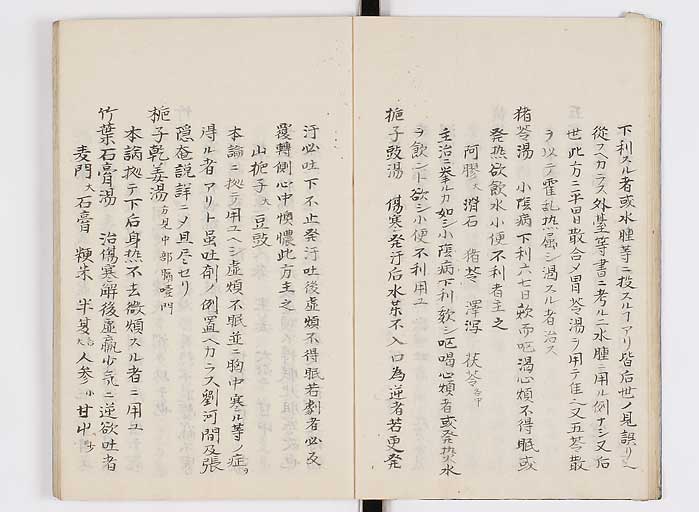 下利スル者或水腫等ニ投スルヿアリ皆后世ノ見誤リ也
從スヘカラス外臺等書ニ考ルニ水腫ニ用ル例ナシ又后
世此方ニ平胃散合メ胃苓湯ヲ用テ
ヲ以テ霍乱热属シ渇スル者治ス
猪苓湯 少陰病下利六七日欬而呕渇心煩不得眠或
発热欲飲水小便不利者主之
阿膠大 滑石 猪苓 澤瀉 茯苓各中
主治ニ挙ルカ如シ少陰病下利欬シ呕喝心煩者或発热水
ヲ飲ンヿ欲シ小便不利用ユ
梔子豉湯 傷寒発汗后水茶不入口為逆者若更発
汗必吐下不止発汗吐後虚煩不得眠若劇者必反
覆轉側心中懊憹此方主之
山梔子大 豆豉
本論ニ拠テ用ユヘシ虚煩不眠並ニ胸中寒ル等ノ症ヲ
得ル者アリト虽吐剤ノ例置ヘカラス劉河間及張
隠菴説詳ニメ且尽セリ
梔子乾姜湯 方見中部膈噎門
本論拠テ下后身热不去微煩スル者ニ用ユ
竹葉石膏湯 治傷寒解後虚羸少気ニ逆欲吐者
麦門大 石膏 粳米 半夏各大 人参小 甘中少